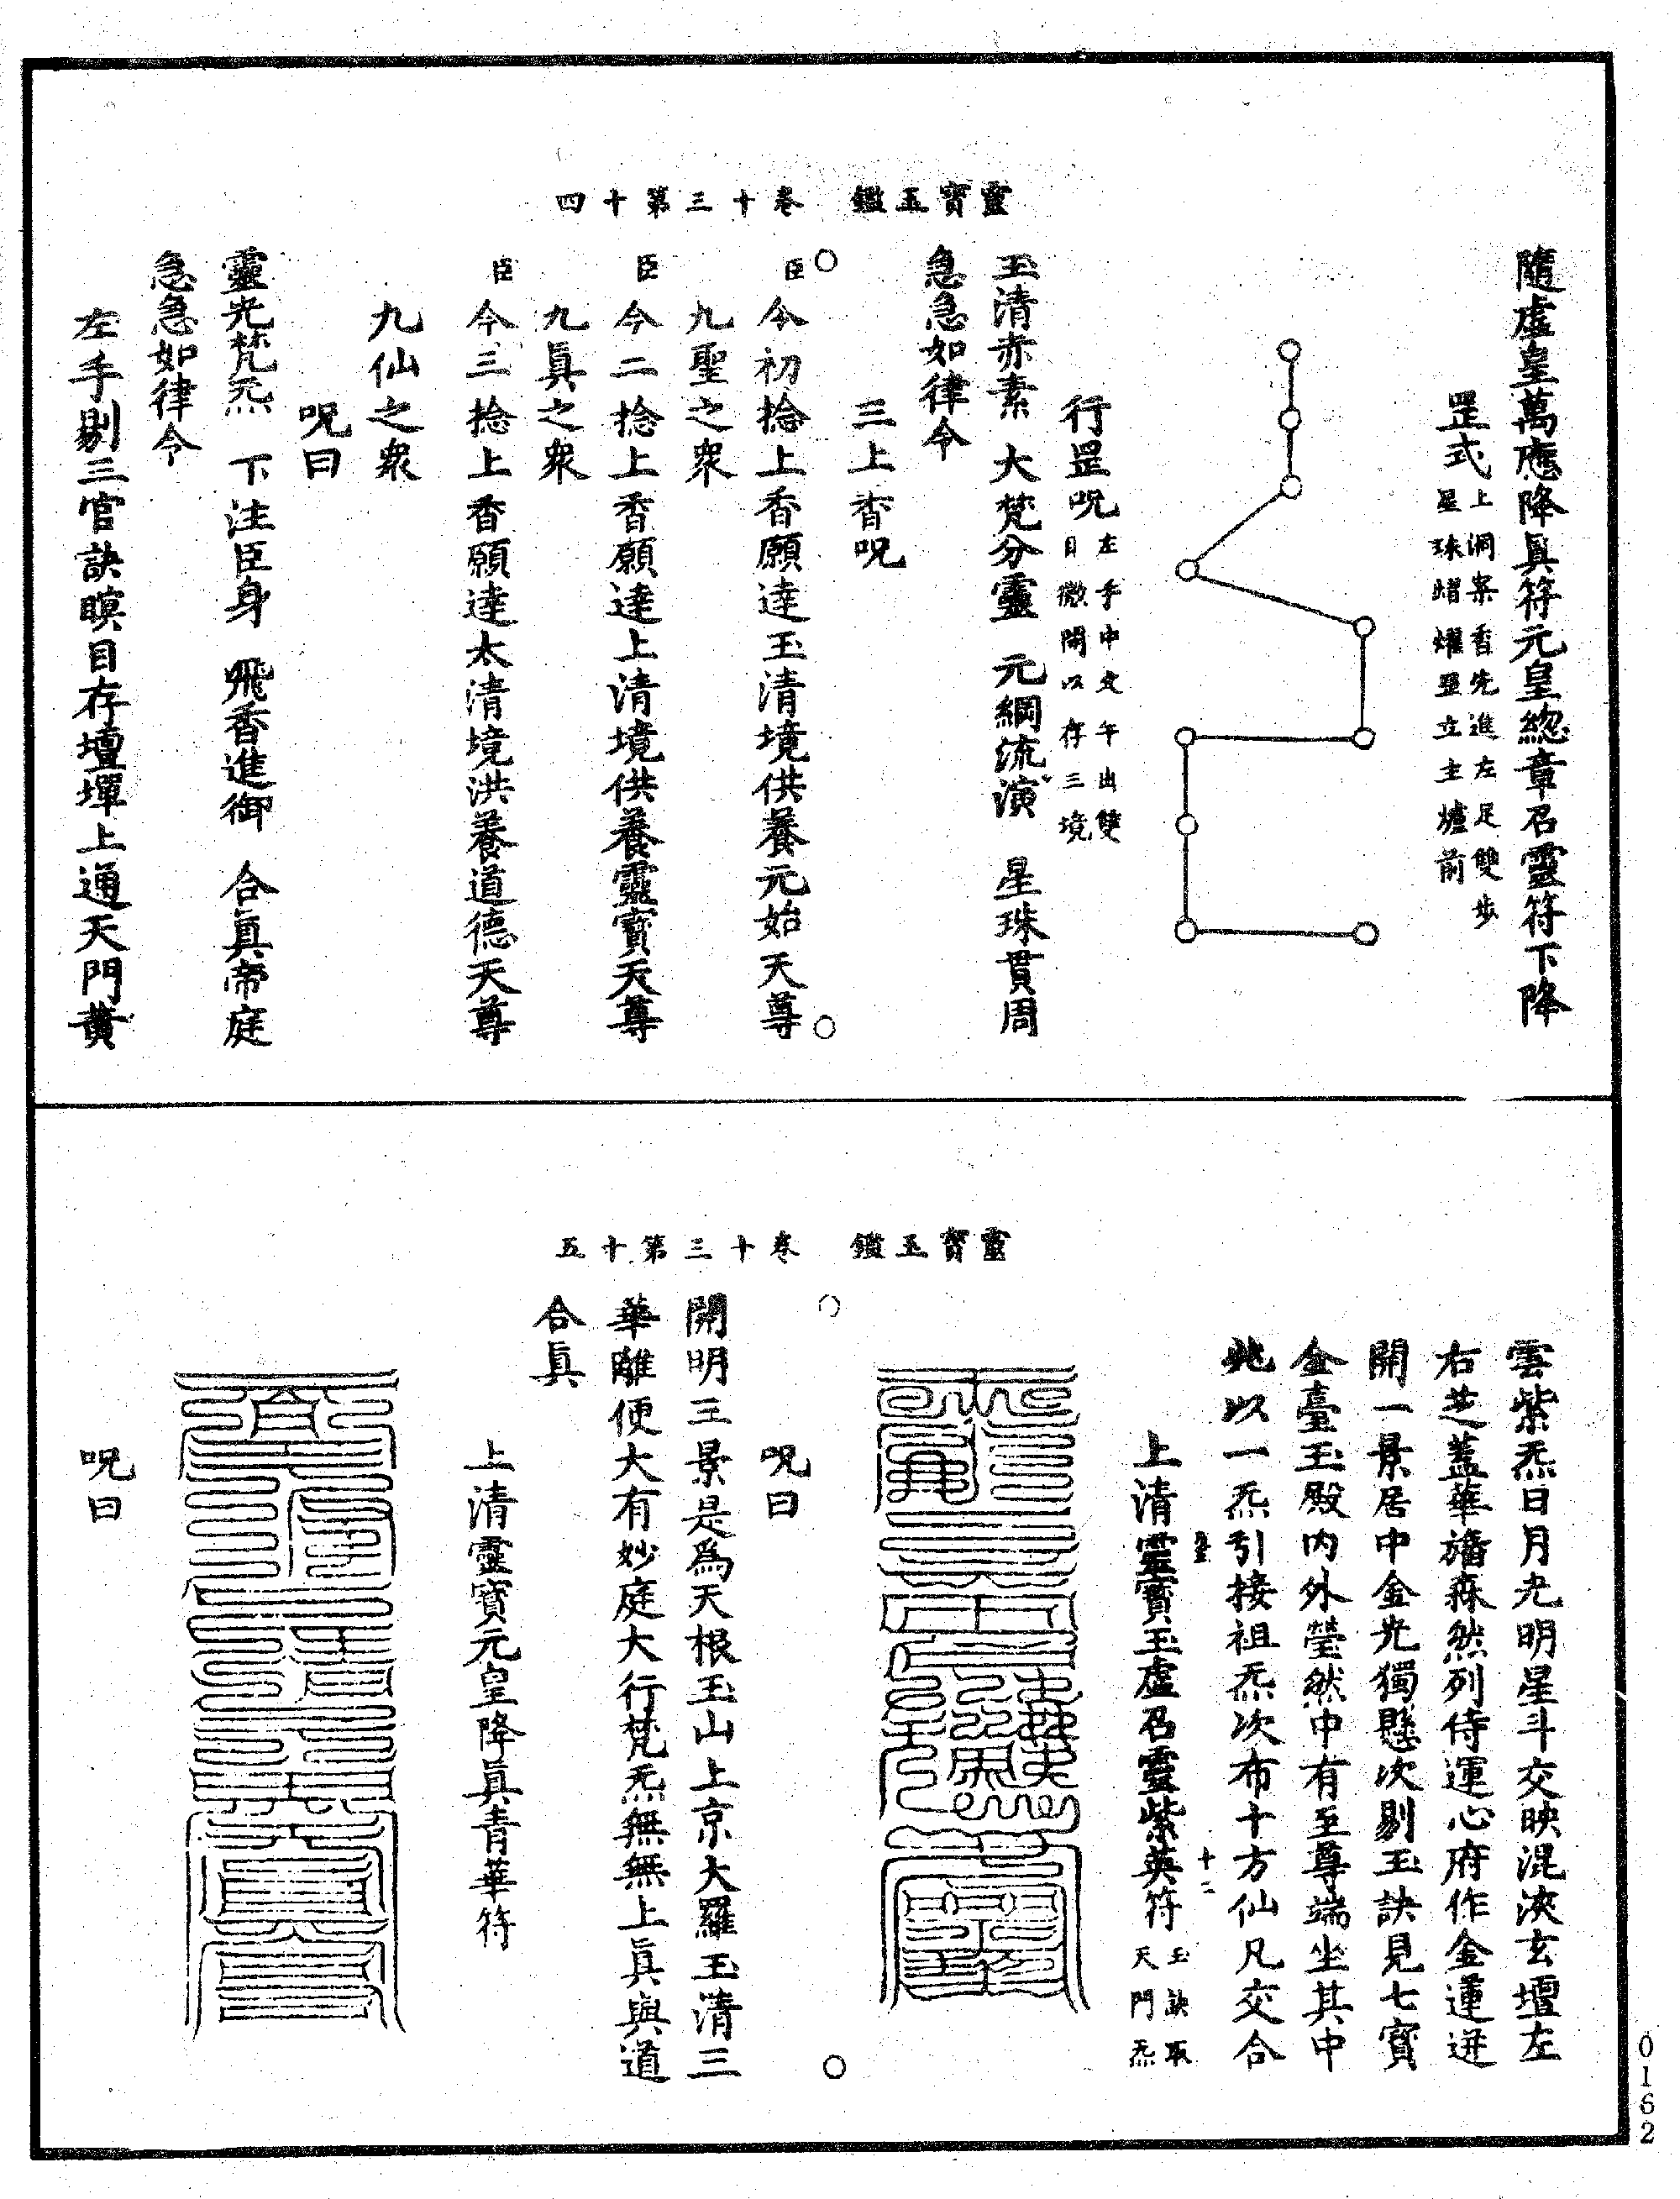 靈寶玉鑑　卷十三第十四
隨虛皇萬應降眞符元皇總章召靈符下降
罡式 上洞案香先進左足雙步
星珠熠燿罡立主爐前
行罡呪 左手中文午出雙
目微開以存三境
玉清赤素　大梵分靈　元綱流演　星珠貫周
急急如律令
三上香呪
臣今初捻上香願達玉清境供養元始天尊
九聖之衆
臣今二捻上香願達上清境供養靈寶天尊
九眞之衆
臣今三捻上香願達太清境洪養道德天尊
九仙之衆
呪曰
靈光梵炁　下注臣身　飛香進御　合眞帝庭
急急如律令
左手剔三官訣瞑目存壇墠上通天門黃
靈寶玉鑑　卷十三第十五
雲紫炁日月光明星斗交映混浹玄壇左
右芝蓋華旛森然列侍運心府作金蓮迸
開一景居中金光獨懸次剔玉訣見七寶
金臺玉殿內外瑩然中有至尊端坐其中
此以一炁引接祖炁次布十方仙凡交合
上清靈寶玉虛召靈紫英符 玉訣取
天門炁
十二
呪曰
開明三景是爲天根玉山上京大羅玉清三
華離便大有妙庭大行梵炁無無上眞與道
合眞
上清靈寶元皇降眞青華符
呪曰
0162